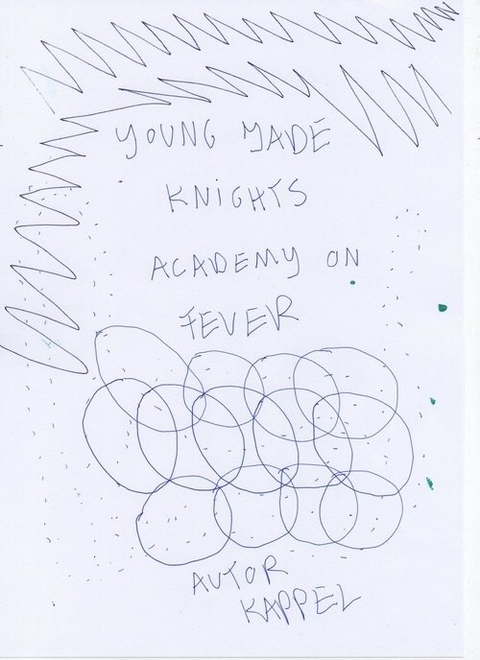 YOUNG JADE
KNiGHTS
ACADEMY ON
FEVER
AUTOR
KAPPEL